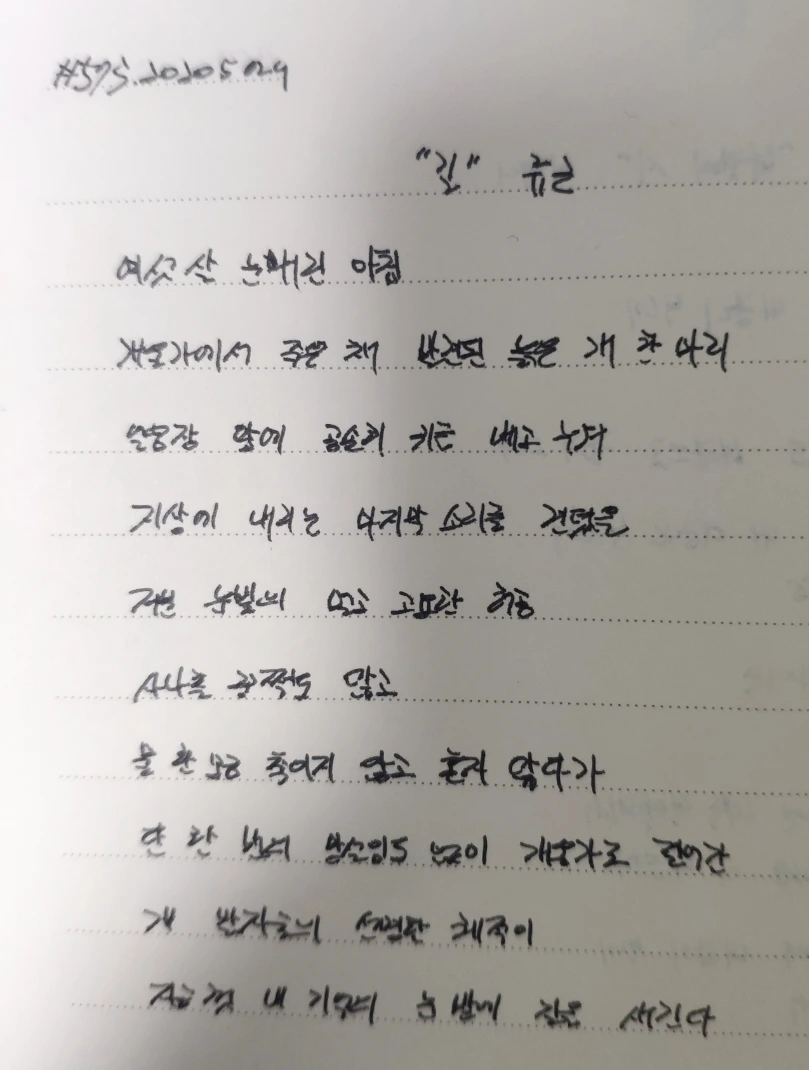 #575. 20205029
"길" 류근
여섯 살 눈 내린 아침
개울가에서 죽은 채 발견된 늙은 개 한 마리
얼음장 앞에 공손히 귀를 대고 누워
지상에 내리는 마지막 소리를 견뎠을
저문 눈빛의 멀고 고요한 허공
사나흘 꿈쩍도 않고
물 한 모금 축이지 않고 혼자 앓다가
단 한 번 개울가로 걸어간
개 발자국의 선명한 궤적이
지금껏 내 기억의 눈밭에 길을 새긴다